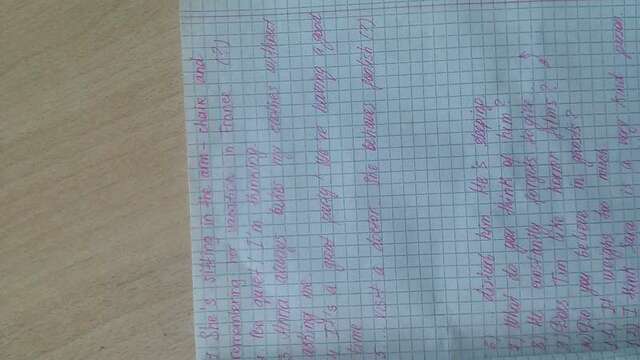 1 She's sitting in the arm-chair and
remembering her vacation in France (?)
quiet! I'm thinking.
3. Anna always takes my clothes without
asking me
4 It's a great party! We're having a good
time
5. ... visit a doctor. She behaves foolish (?)
6) ... disturb him He's sleeping
7) What do you think of him?
8) He constantly forgets to give
9) Does Tim like horror films?
10) Do you believe in ghosts?
11) It weighs too much
12) I think Sara is a very kind person.